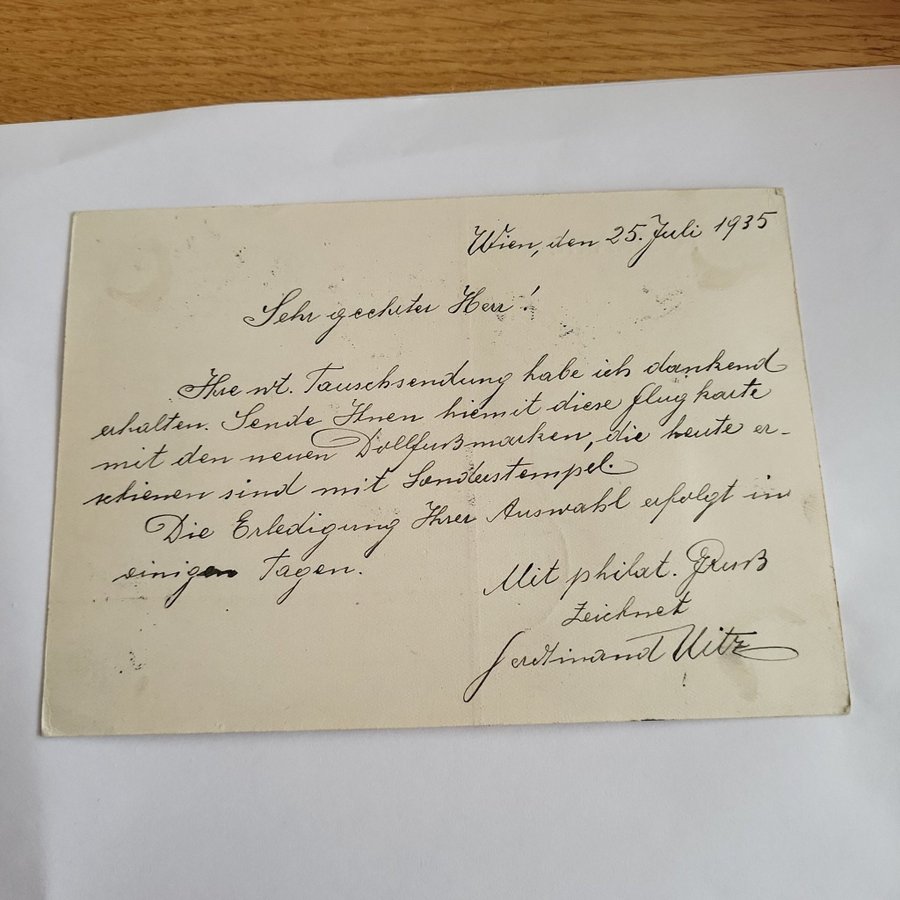 Wien, den 25. Juli 1935
Sehr geehrter Herr!
Ihre wt. Tauschsendung habe ich dankend
erhalten. Sende Ihnen hiemit diese Flugkarte
mit den neuen Dollfußmarken, die heute er-
schienen sind mit Sonderstempel.
Die Erledigung Ihrer Auswahl erfolgt in
einigen Tagen.
Mit philat. Gruß
zeichnet
Ferdinand Uitz